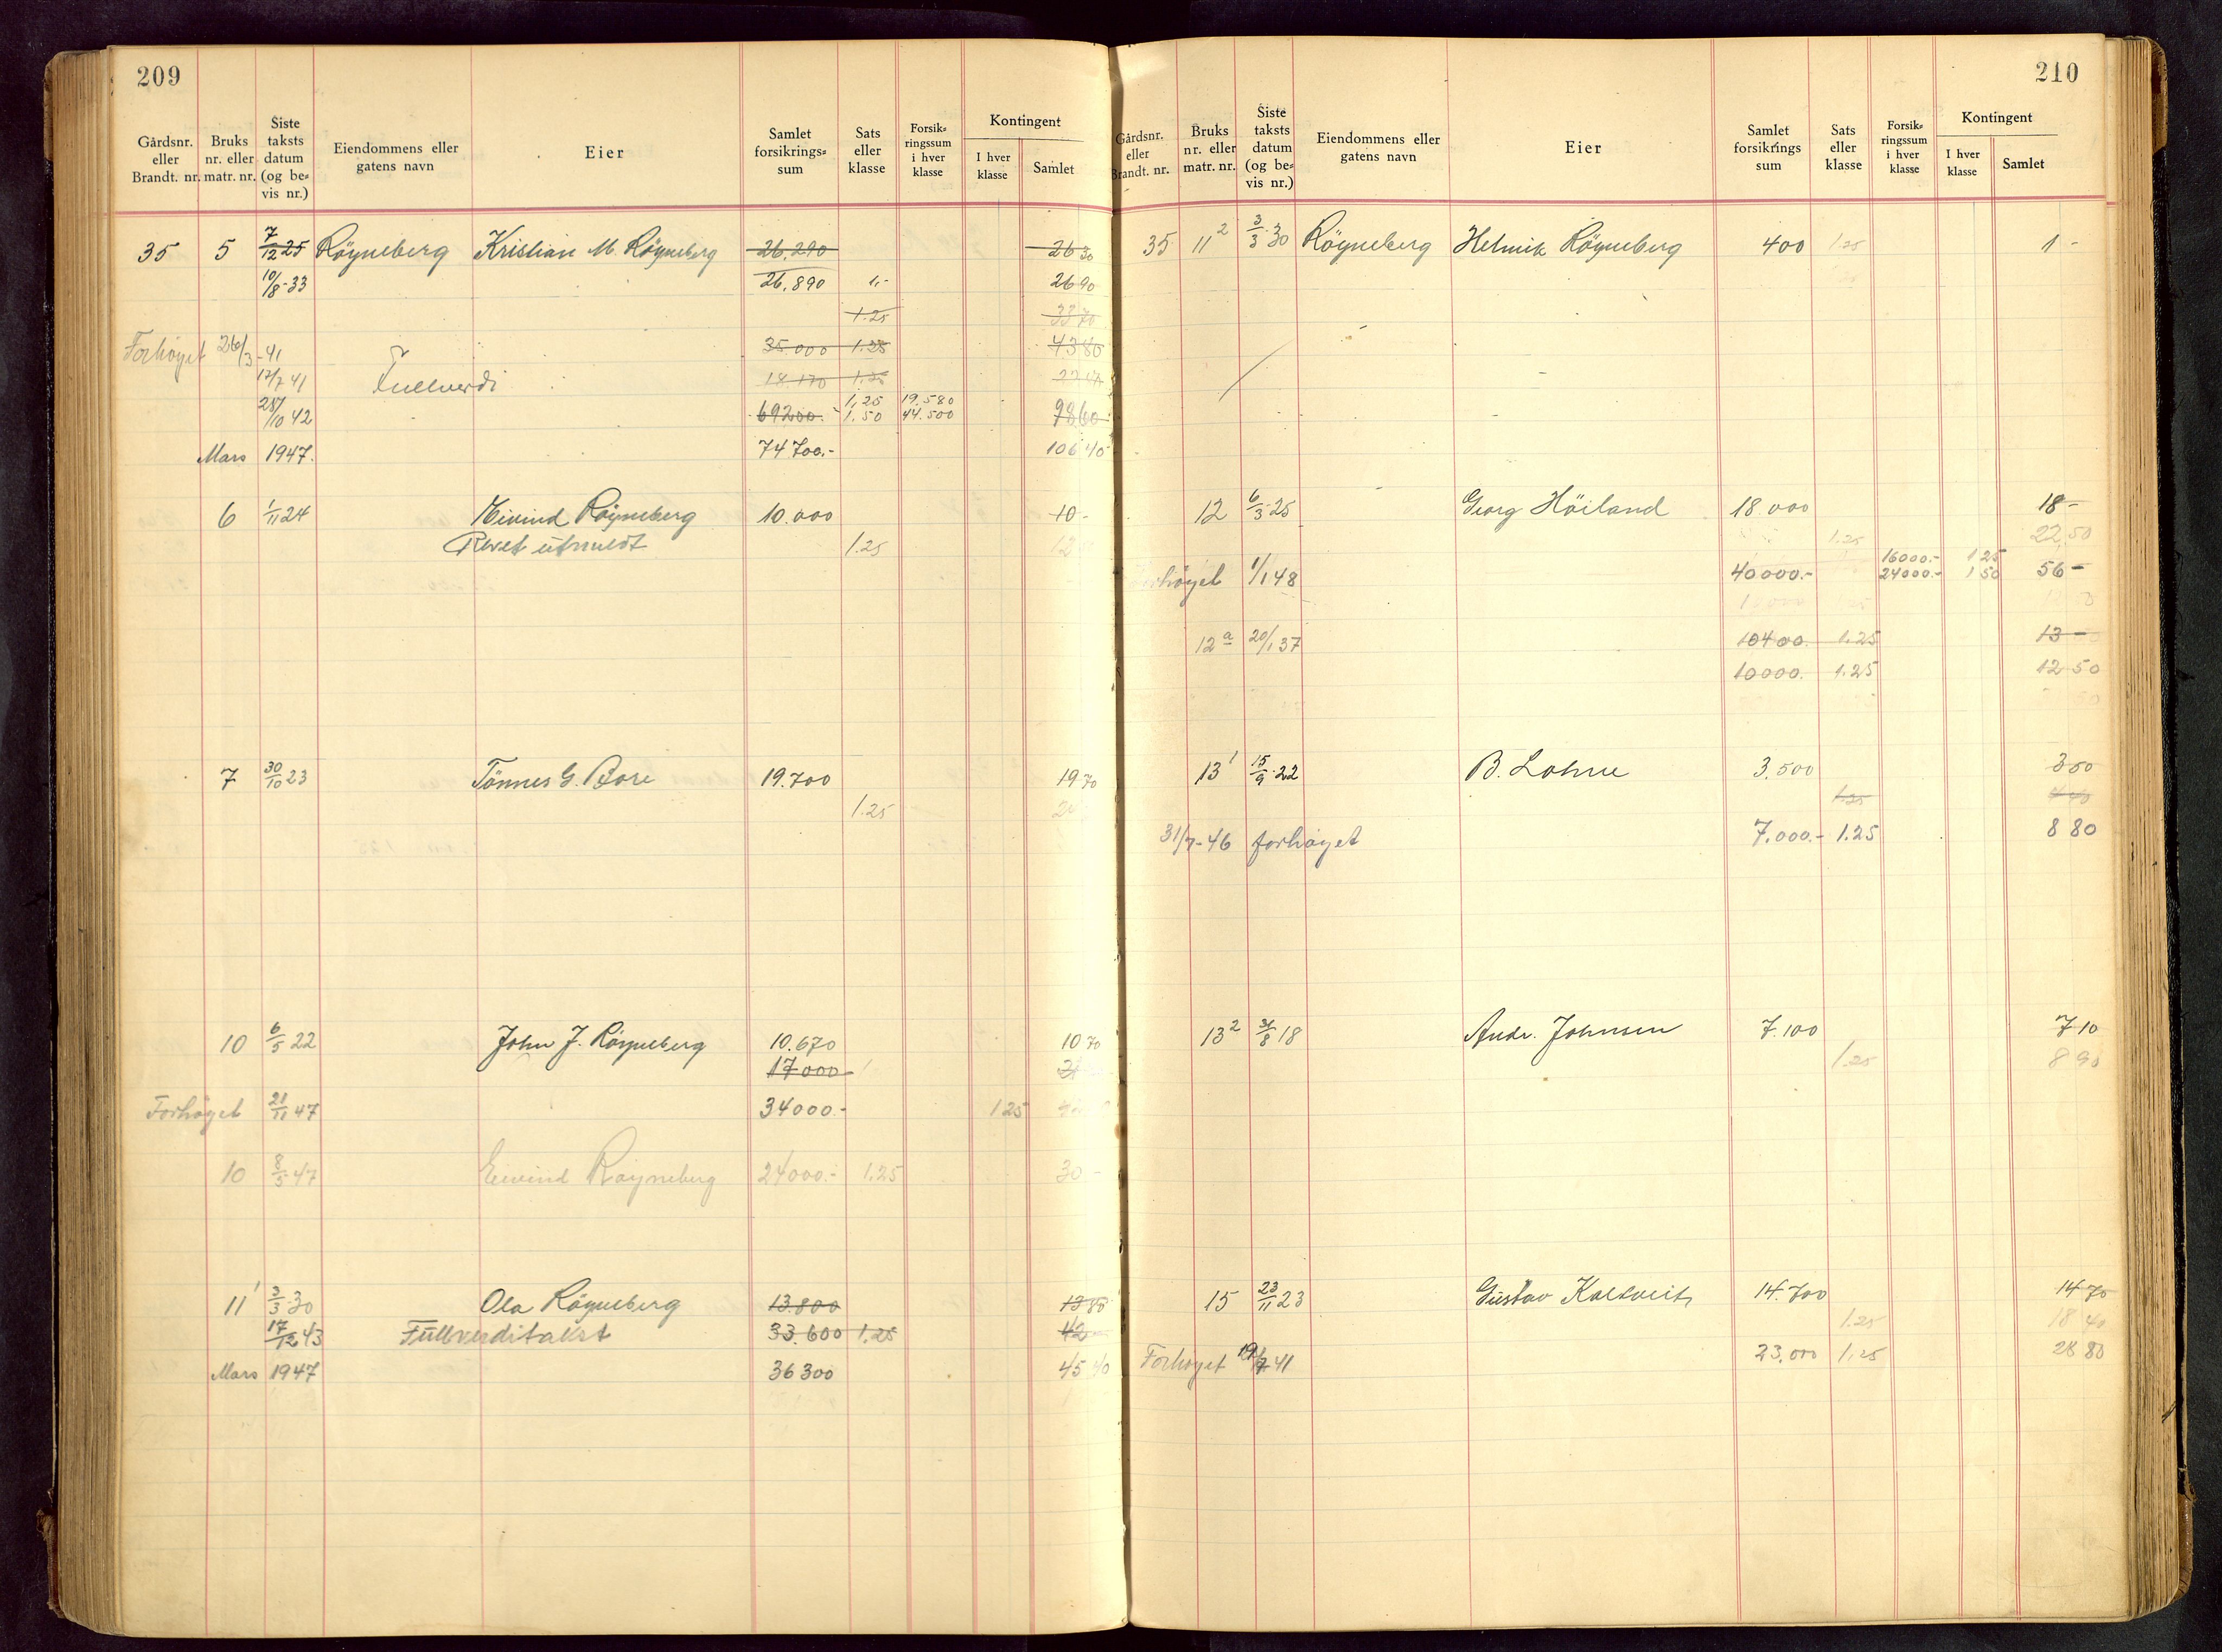 209
Gårdsnr. eller Brandt. nr.
Bruks nr. eller matr. nr.
Siste taksts datum (og be= vis nr.)
Eiendommens eller gatens navn
Eier
Samlet forsikrings= sum
Sats eller klasse
Forsik= ringssum i hver klasse
Kontingent
I hver klasse
Samlet
35 5 7/12 25 Röyneberg Kristian M. Röyneberg 26.290 26 30
10/8-33 26.890 1,- 26 90
1.25 33 70
Forhöyet 26/3-41 35.000 1.25 43 80
12/7 41 Fullverdi 18.170 1.25
28/10 42 69200.- 1,25 19.580 98 60
1.50 44.500
Mars 1947. 74 700.- 106 40
6 1/11 24 Eivind Röyneberg 10.000 10-
1.25
7 30/10 23 Tönnes G. Bore 19.700 19 70
1.25
10 6/5 22 John J. Röyneberg 10.670 10 70
17000
Forhöyet 21/11 47 34000.- 1 25
10 8/5-47 Eivind Röyneberg 24000.- 1.25 30 -
11 1 3/3-30 Ola Röyneberg 13.800 13 80
17/12 43 Fullverditakst 33.600 1.25 42
Mars 1947 36 300 45 40
210
Gårdsnr. eller Brandt. nr.
Bruks nr. eller matr. nr.
Siste taksts datum (og be= vis nr.)
Eiendommens eller gatens navn
Eier
Samlet forsikrings sum
Sats eller klasse
Forsik= ringssum i hver klasse
Kontingent
I hver klasse
Samlet
35 11 2 3/3-30 Röyneberg Helmik Röyneberg 400 1.25 1 -
12 6/3-25 Georg Höiland 18.000 18 -
1.25 22 50
Forhöyet 1/1 48 40000.- 16000.- 1 25 56 -
24000.- 1 50
12 a 20/1 37 10400. 1.25 13 -
10000. 1.25 12 50
13 1 15/9-22 B. Lohne 3.500 3 50
1.25
31/7-46 forhöyet 7.000.- 1.25 8 80
13 2 31/8 18 Andr. Johnsen 7.100 7 10
1.25 8 90
15 23/11 23 Gustav Kaltveit 14.700 14 70
1.25 18 40
Forhöyet 19/7 41 23.000 1.25 28 80